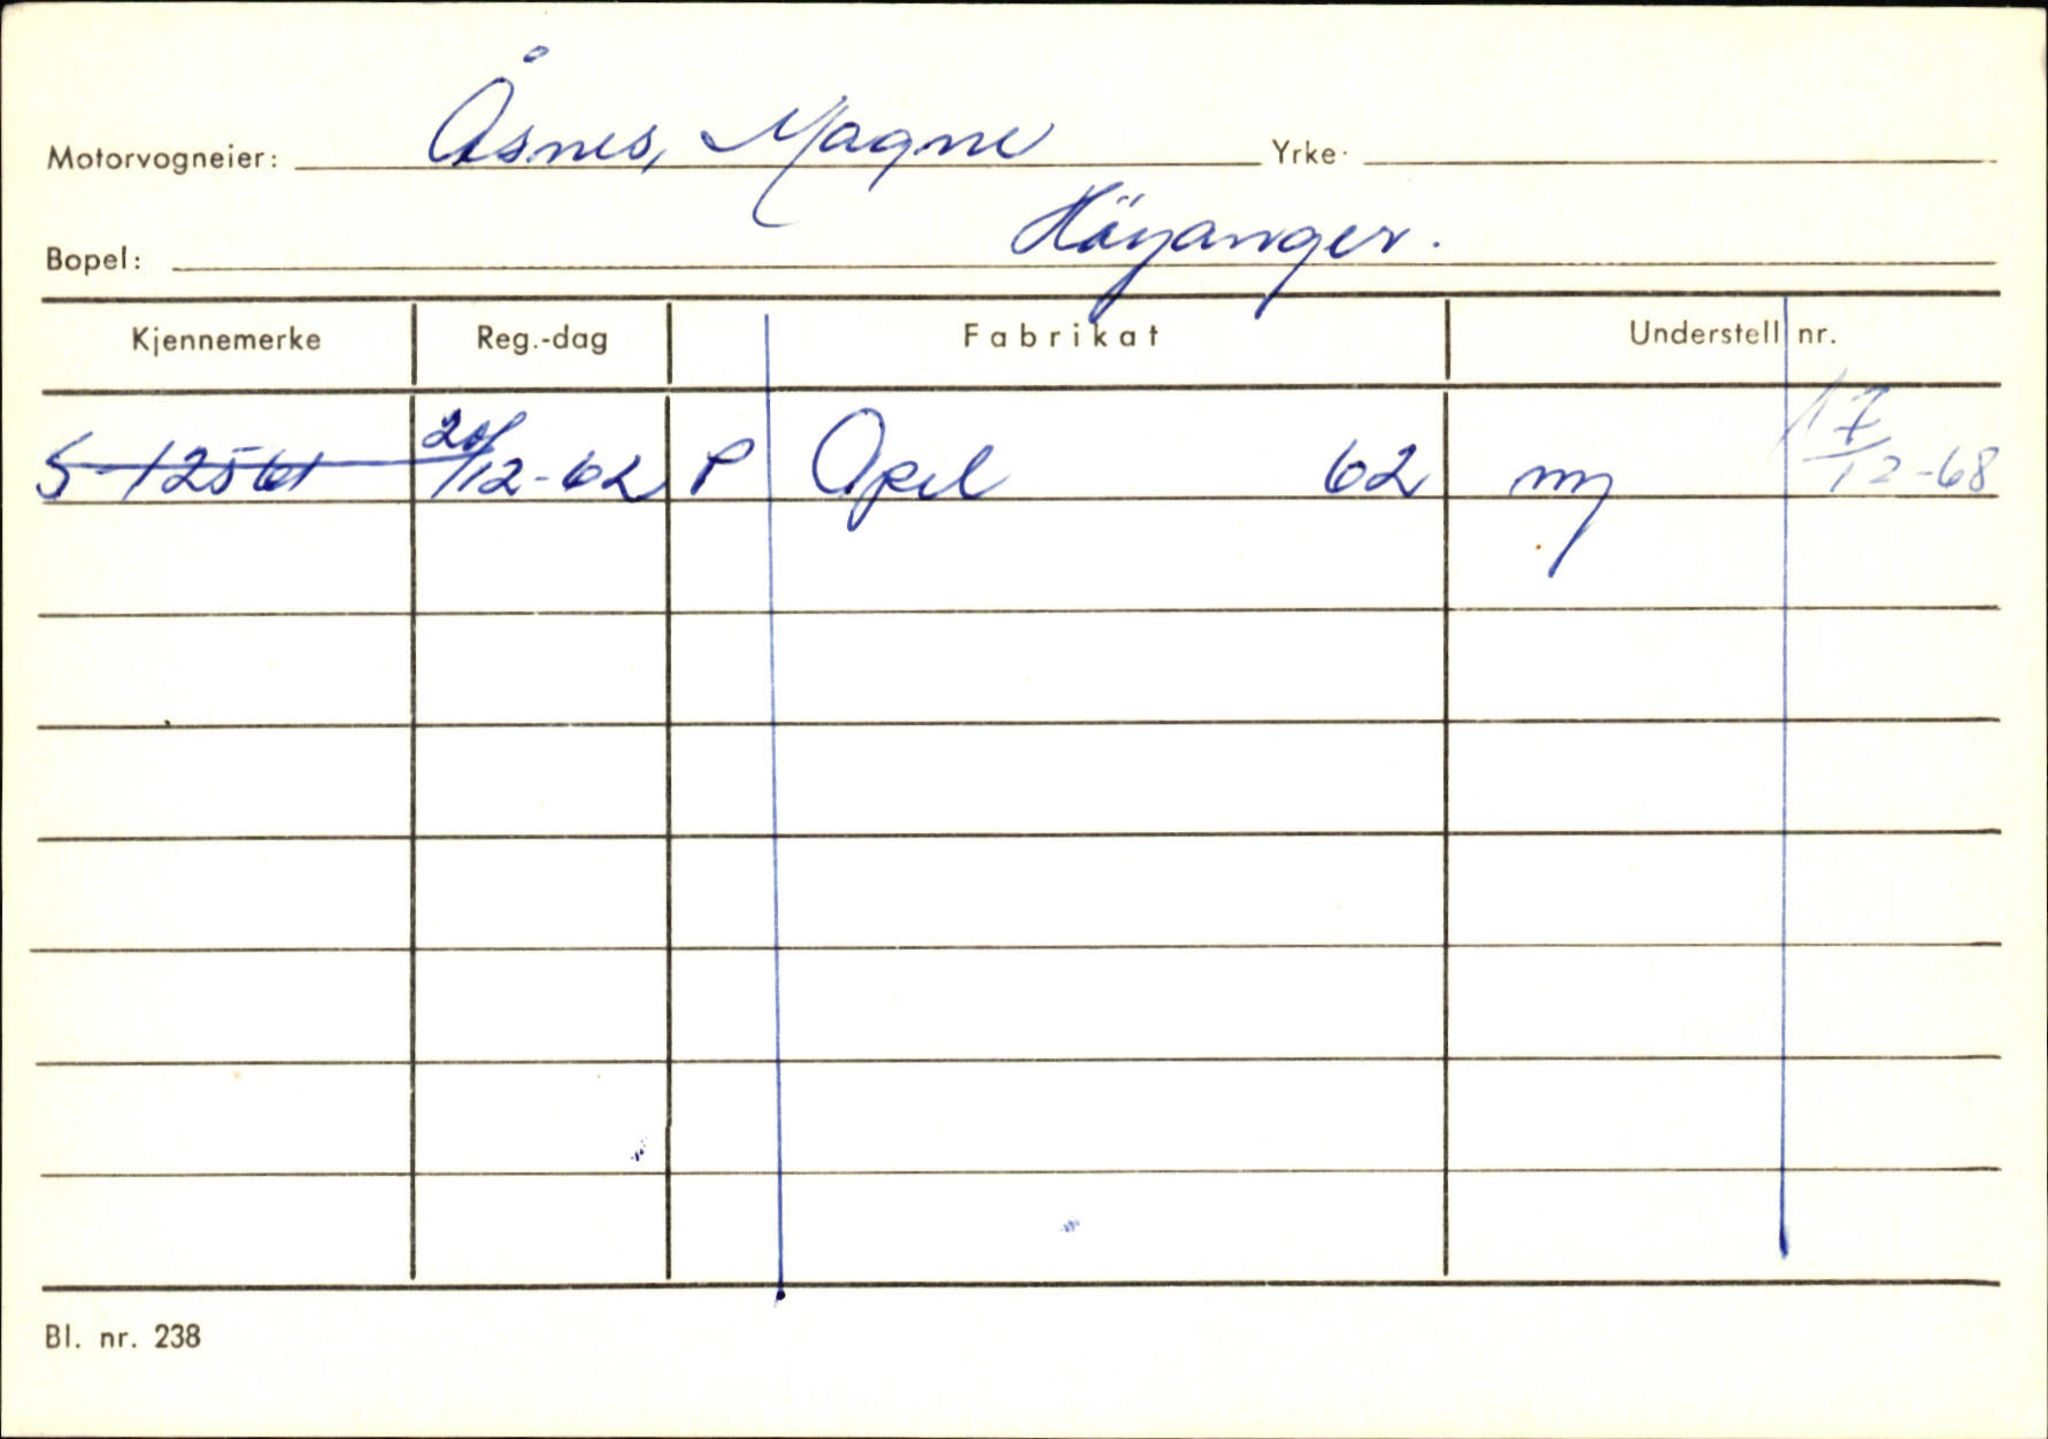 Motorvogneier: Åsnes, Magne Yrke:
Bopel: Höyanger.
Kjennemerke Reg.-dag Fabrikat Understell nr.
S-12561 20/12-62 P Opel 62 ny 17/12-68
Bl. nr. 238